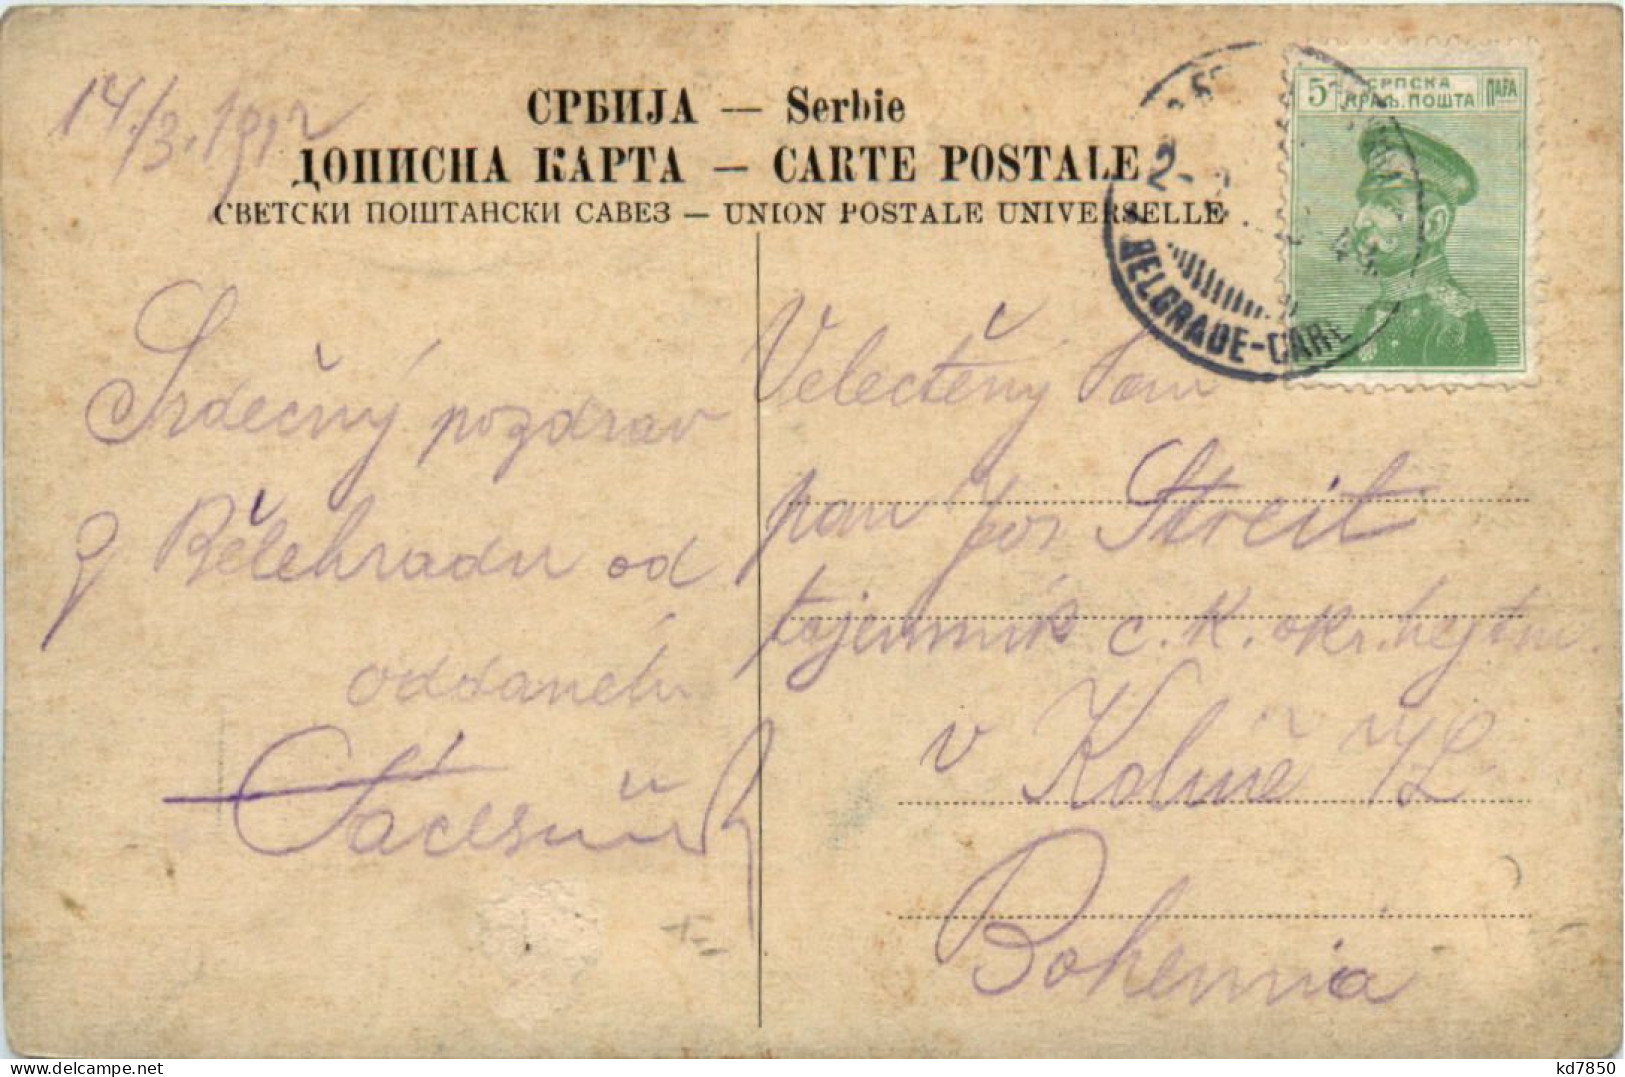 14./3. 1912
СРБИЈА — Serbie
ДОПИСНА КАРТА — CARTE POSTALE
СВЕТСКИ ПОШТАНСКИ САВЕЗ — UNION POSTALE UNIVERSELLE
5 СРПСКА ПАРА
КРАЉ. ПОШТА
BELGRADE-GARE
Srdečný pozdrav
z Bělehradu od
oddaného
Velectěný Pan
pan Jos Streit
tajemník c. K. okr. hejtm.
v Kolíně
Bohemia
delcampe.net
kd7850